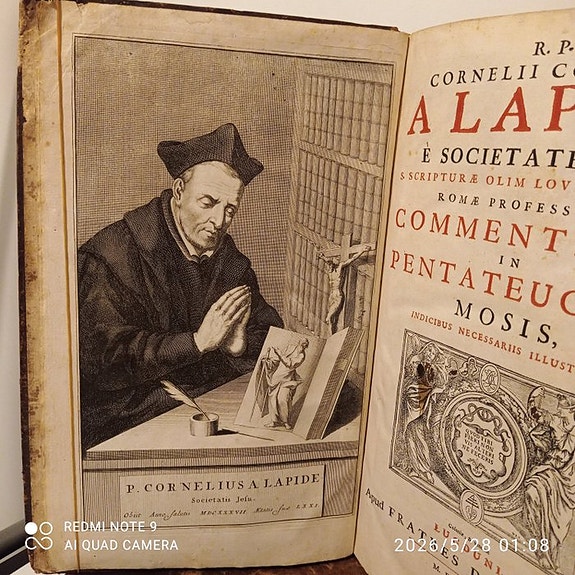 P. CORNELIUS A LAPIDE
Societatis Jesu.
Obiit Anno salutis MDCXXXVII Ætatis suæ LXXI.
R. P.
CORNELII CO
A LAP
È SOCIETATE
S. SCRIPTURÆ OLIM LOV
ROMÆ PROFESS
COMMENT
IN
PENTATEUC
MOSIS,
INDICIBUS NECESSARIIS ILLUST
Apud FRATRES D
REDMI NOTE 9
AI QUAD CAMERA
2026/5/28 01:08